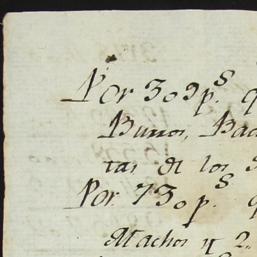 Por 309 p.s
Burros, Bac
tas de los
Por 730 p.s
Machos y 2